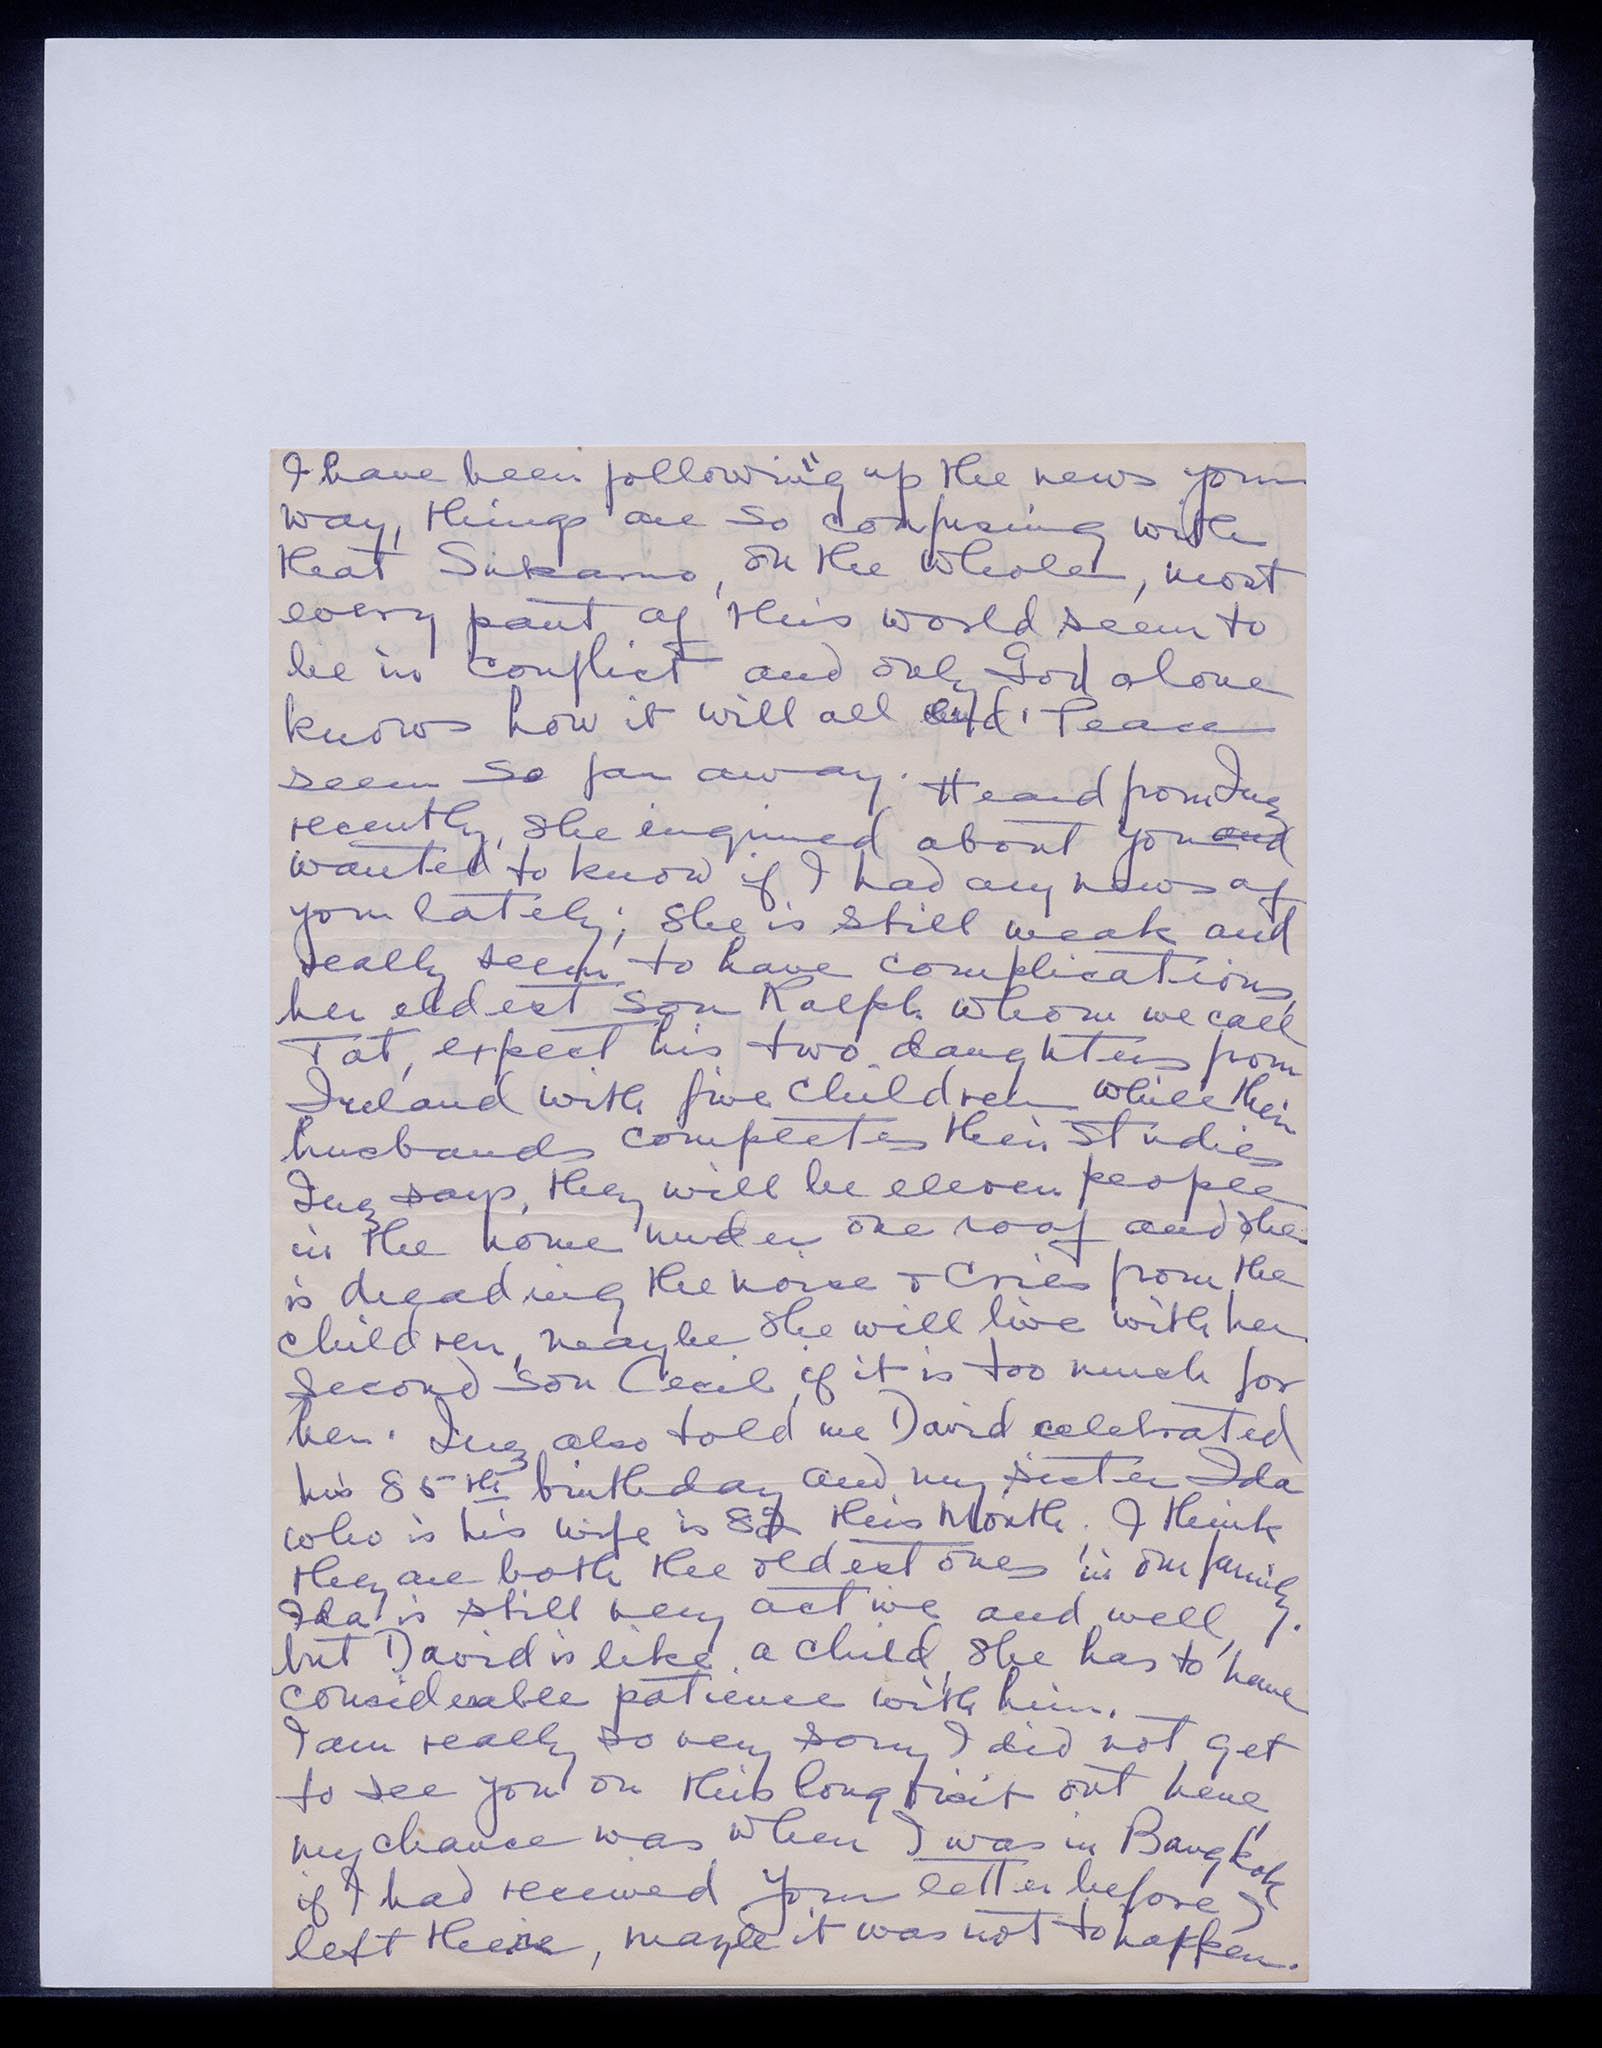 I have been following up the news your
way, things are so confusing with
that Sukarno, on the whole, most
every part of this world seem to
be in conflict and only God alone
knows how it will all end. Peace
seem so far away. Heard from Inez
recently, she enquired about you and
wanted to know if I had any news of
you lately; she is still weak and
really seem to have complications,
her eldest son Ralph whom we call
Tat, expect his two daughters from
Ireland with five children while their
husbands completes their studies
Inez says, they will be eleven people
in the home under one roof and she
is dreading the noise & cries from the
children, maybe she will live with her
second son Cecil, if it is too much for
her. Inez also told me David celebrated
his 85th birthday and my sister Ida
who is his wife is 82 this Month. I think
they are both the oldest ones in our family.
Ida is still very active and well,
but David is like a child, she has to have
considerable patience with him.
I am really so very sorry I did not get
to see you on this long visit out here,
my chance was when I was in Bangkok
if I had received your letter before I
left there, maybe it was not to happen.